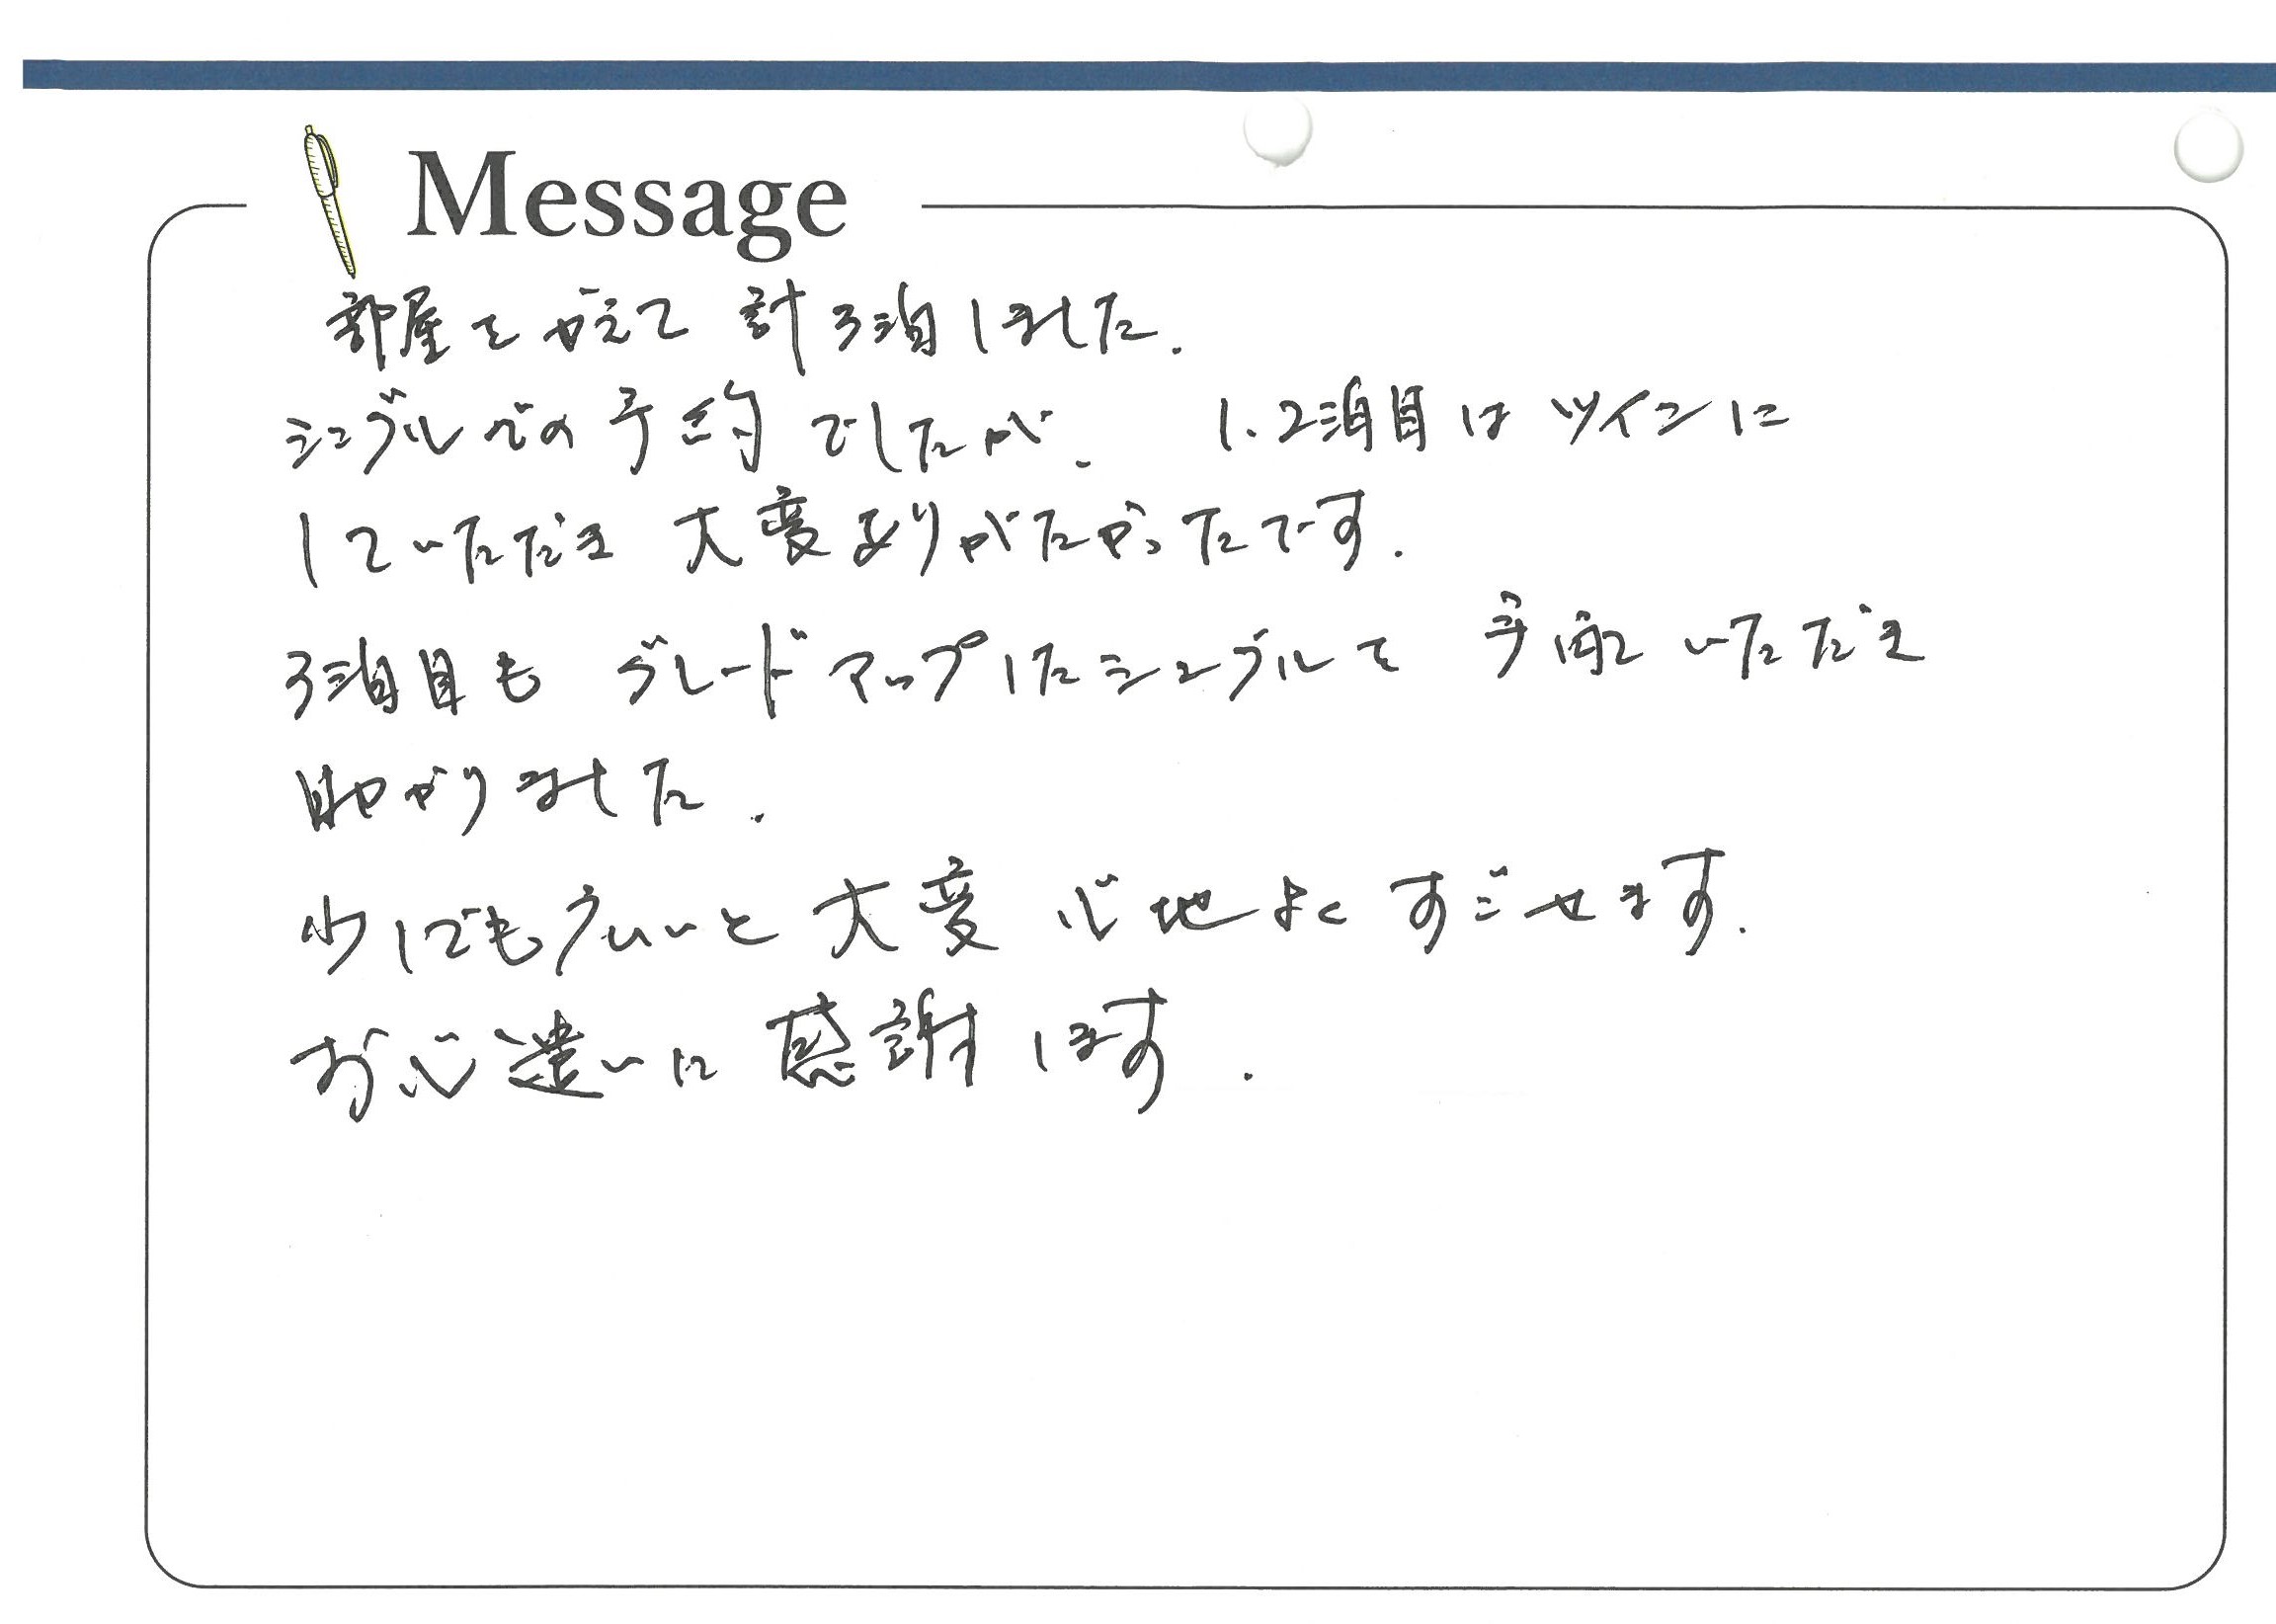 Message
部屋をかえて 計3泊しました.
シングルでの予約でしたが、 1、2泊目はツインに
していただき 大変ありがたかったです.
3泊目も グレードアップしたシングルを 手配いただき
助かりました.
少しでも広いと 大変 心地よく すごせます.
お心遣いに 感謝します.